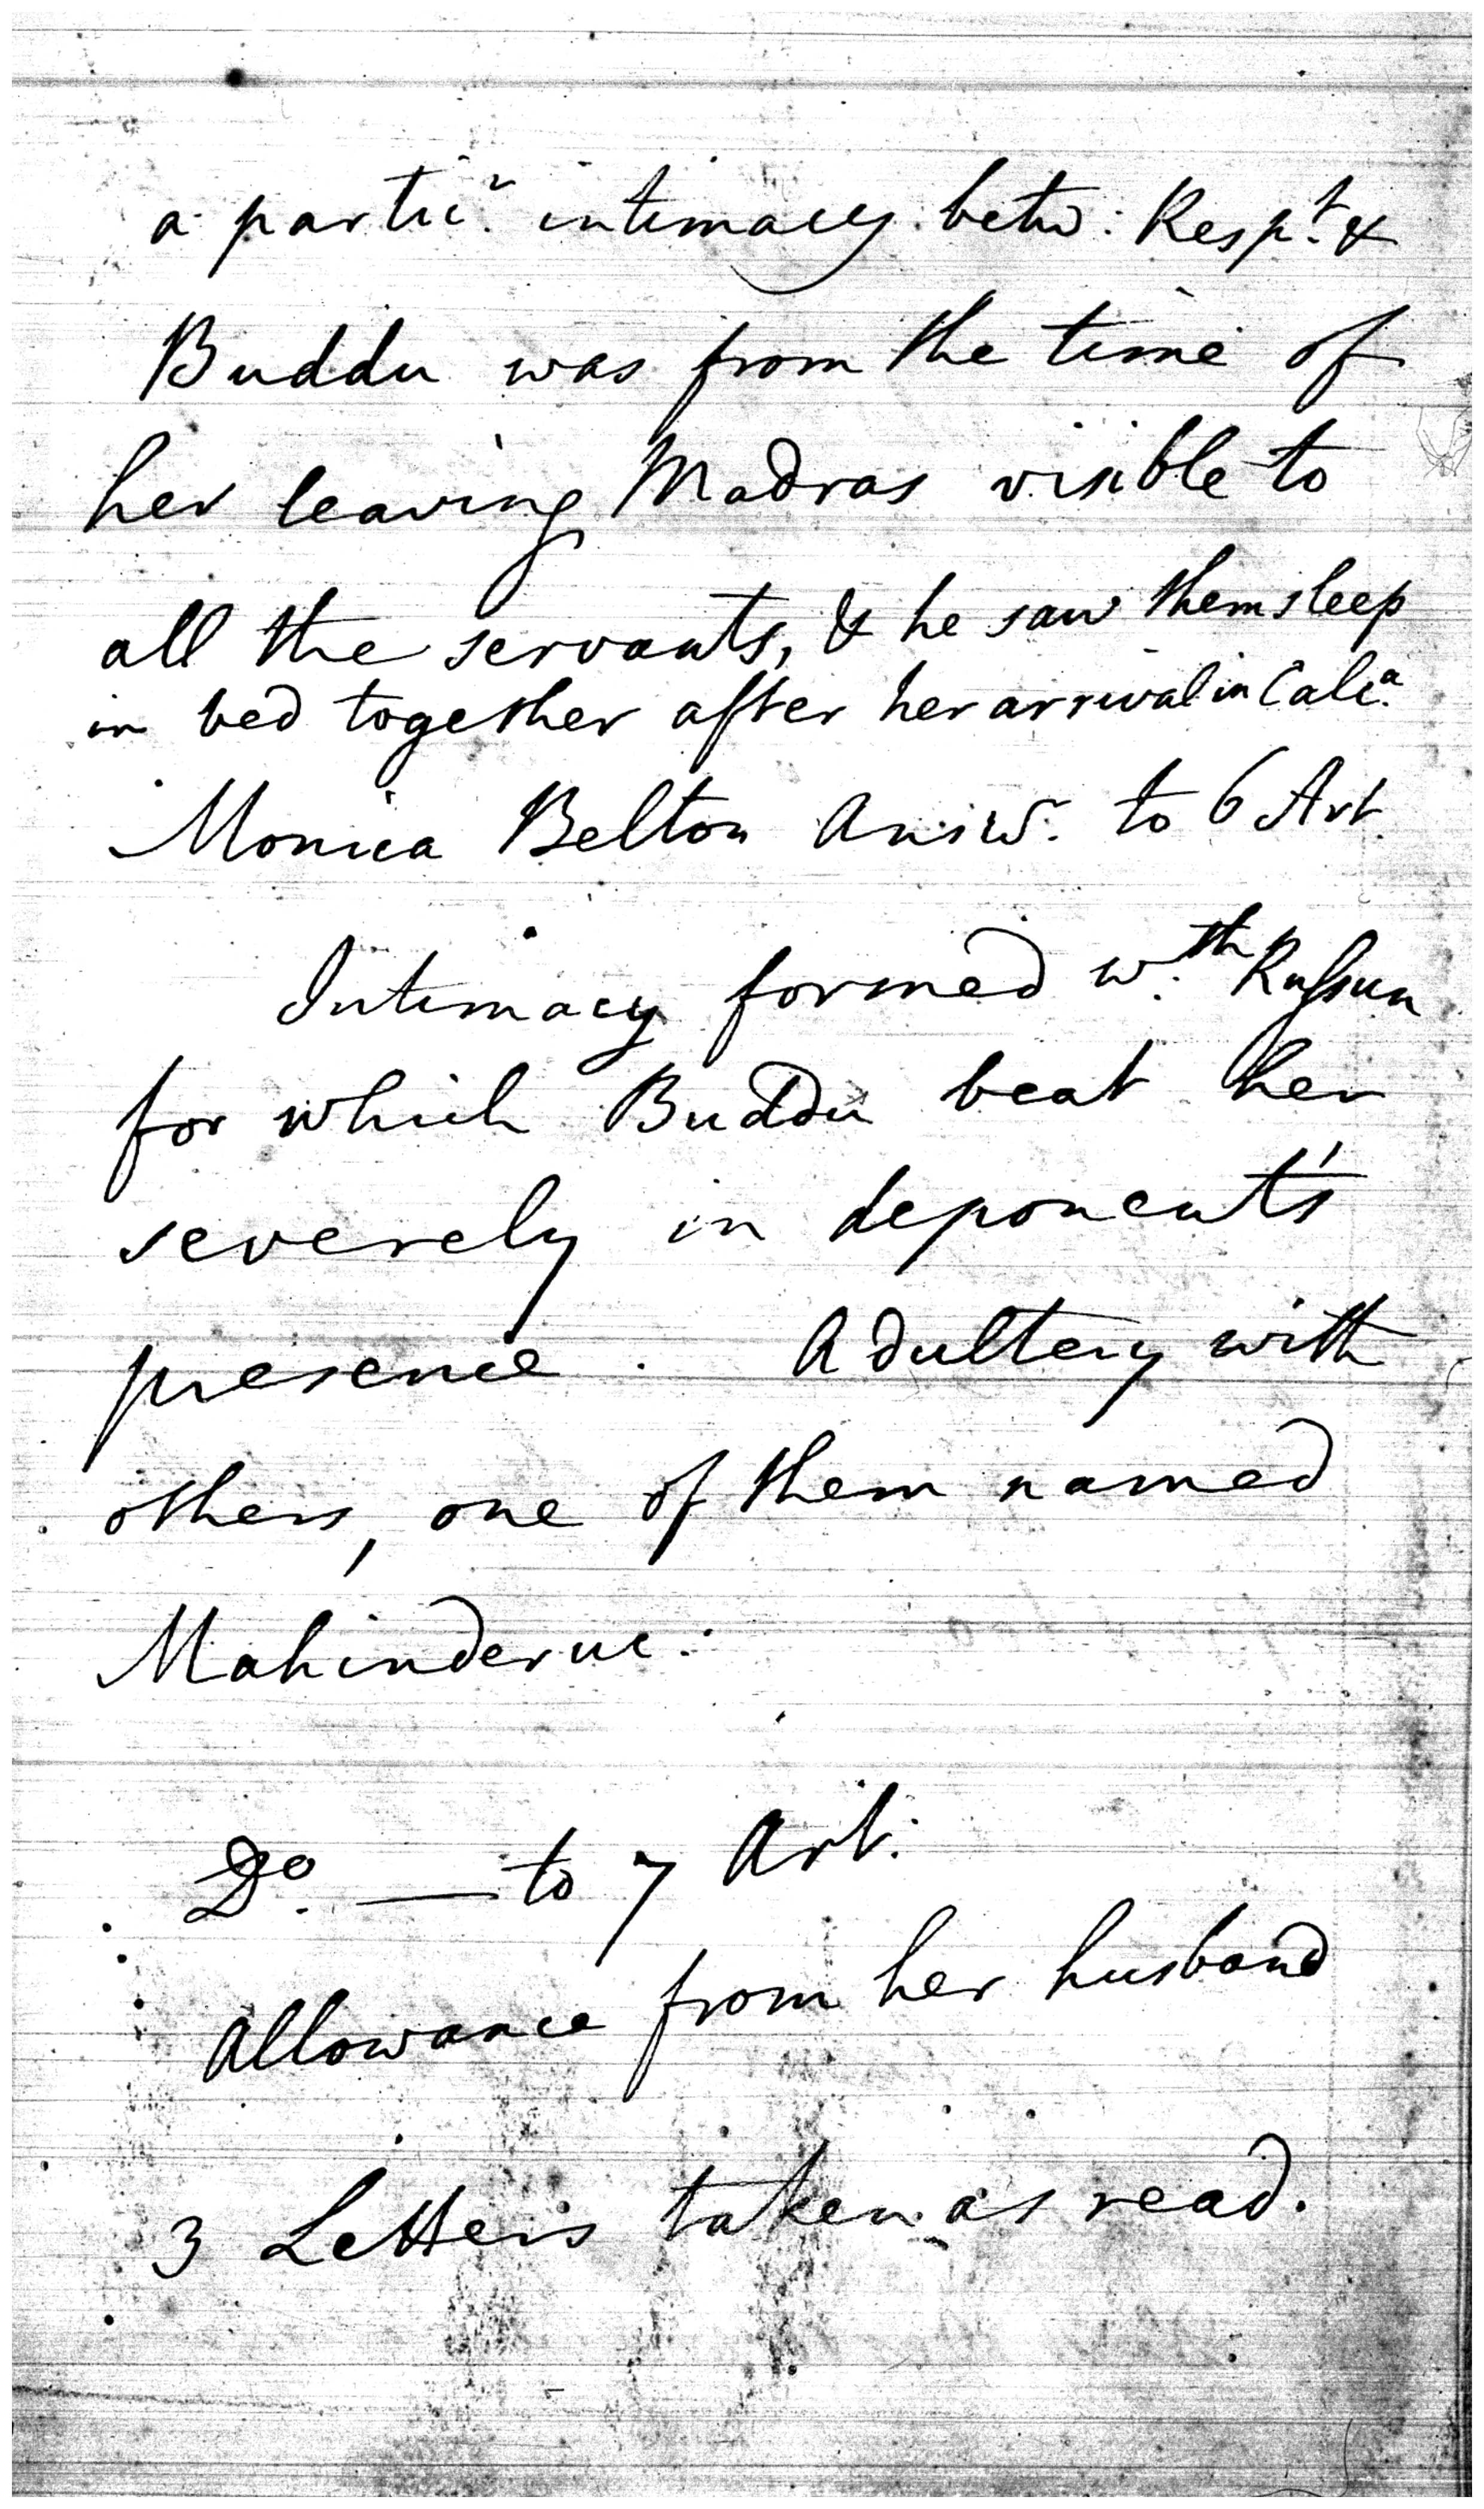 a partic.r intimacy betw: Resp.t &
Buddu was from the time of
her leaving Madras visible to
all the servants, & he saw them sleep
in bed together after her arrival in Calc.a
Monica Belton Answ. to 6 Art.
Intimacy formed w.th Rufsun
for which Buddu beat her
severely in deponent's
presence. Adultery with
others, one of them named
D.o — to 7 Art.
Allowance from her husband
3 Letters taken as read.